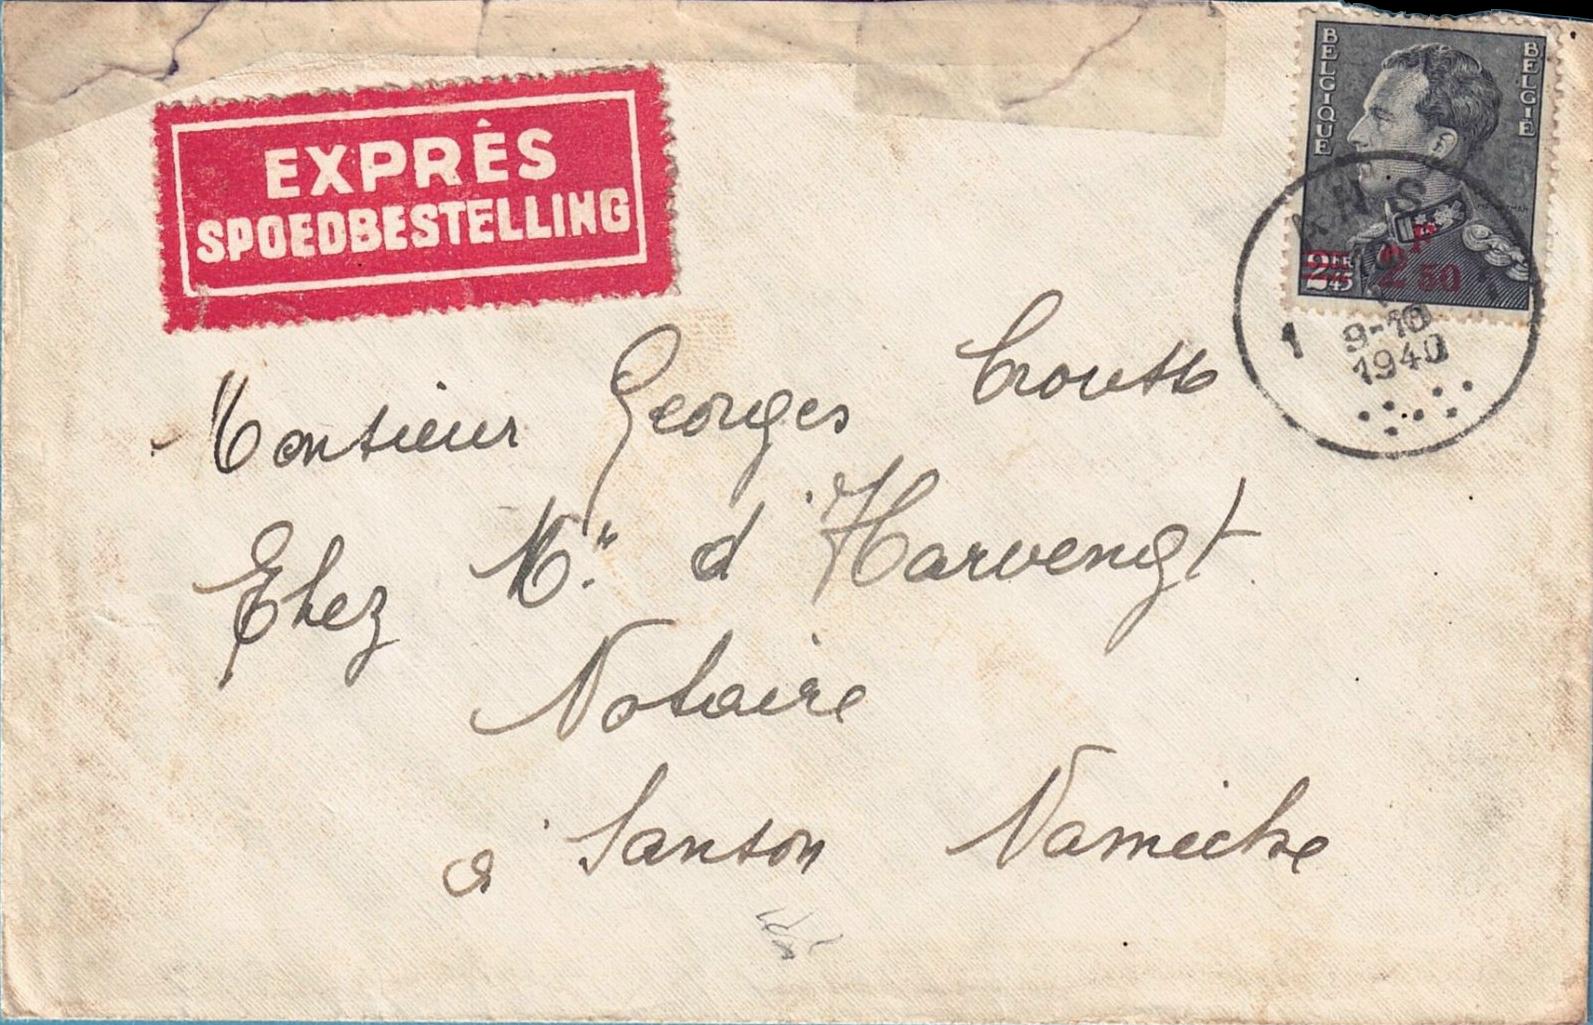 EXPRÈS
SPOEDBESTELLING
BELGIQUE
BELGIË
2 FR 45
2F 50
1
9-10
1940
Monsieur Georges
Chez Mr. d'Harvengt
Notaire
à Sanson Namèche